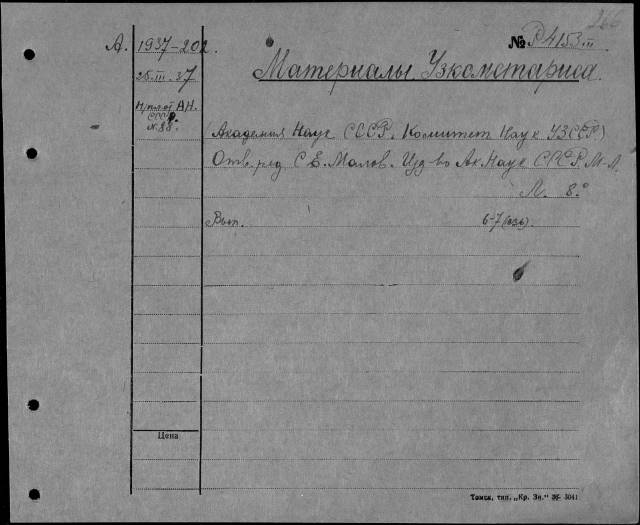 266
А. 1937-202. № Р4153 III
25-III-37 Материалы Узкомстариса
Н/пл от АН. СССР
№ 88.
Академия Наук СССР. Комитет Наук УЗССР.
Отв. ред. С. Е. Малов. Изд-во Ак. Наук СССР. М-Л.
Л. 8.°
Вып. 6-7 (1936).
Цена
Томск, тип. „Кр. Зн." № 3041